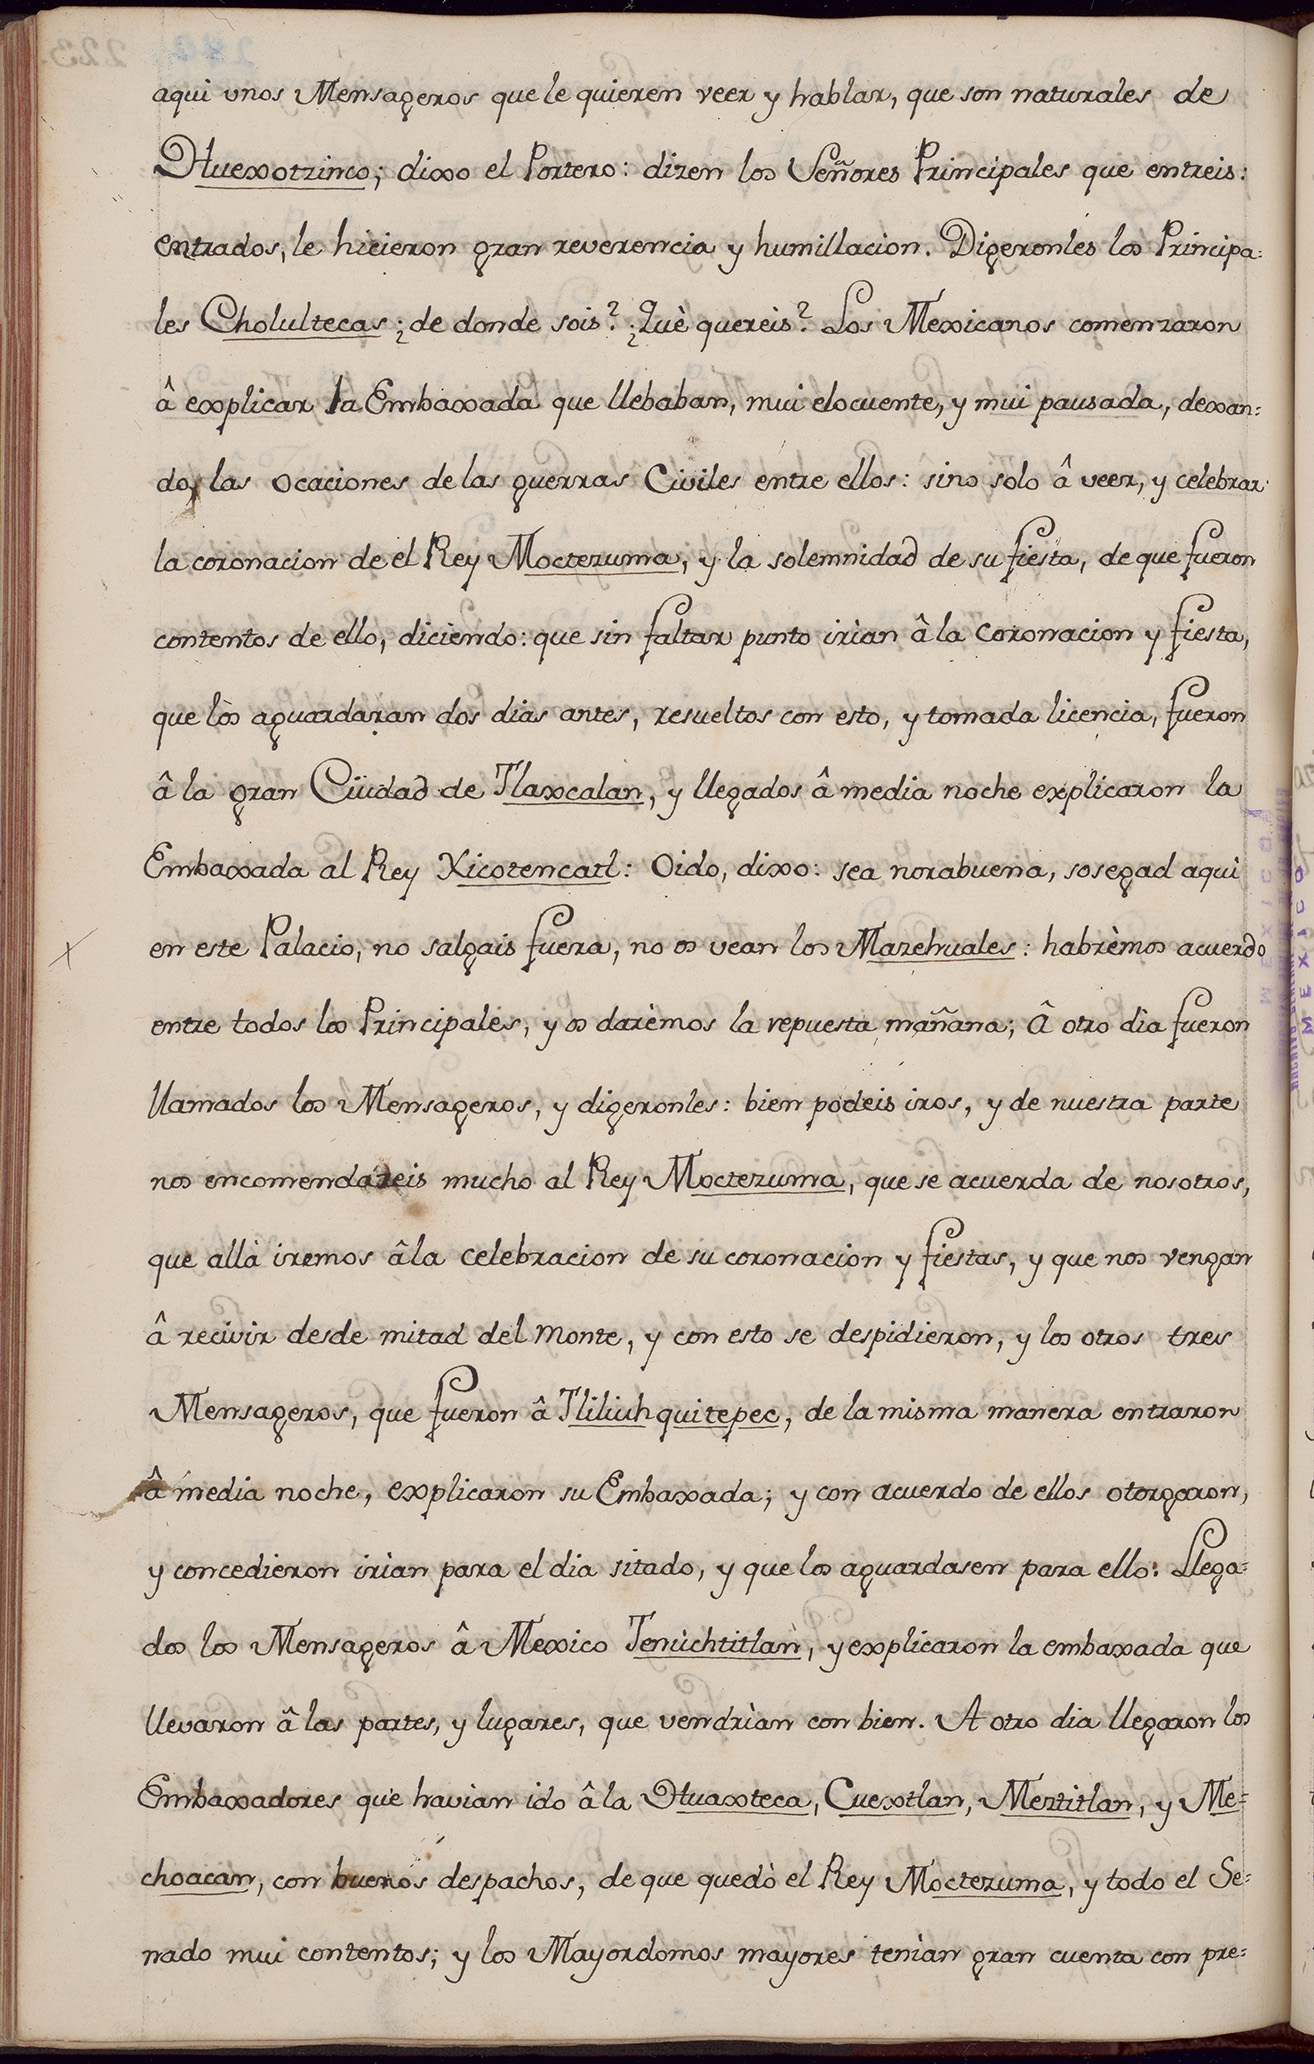 aqui vnos Mensageros que le quieren veer y hablar, que son naturales de
Huexotzinco; dixo el Portero: dizen los Señores Principales que entreis:
entrados, le hicieron gran reverencia y humillacion. Digeronles los Principa=
les Cholultecas ¿de donde sois? ¿Què quereis? Los Mexicanos comenzaron
â explicar la Embaxada que llebaban, mui elocuente, y mui pausada, dexan=
do, las ocaciones de las guerras Civiles entre ellos: sino solo â veer, y celebrar
la coronacion de el Rey Moctezuma, y la solemnidad de su fiesta, de que fueron
contentos de ello, diciendo: que sin faltar punto irìan â la coronacion y fiesta,
que lòs aguardaran dos dias antes, resueltos con esto, y tomada licencia, fueron
â la gran Ciüdad de Tlaxcalan, y llegados â media noche explicaron la
Embaxada al Rey Xicotencatl: Oido, dixo: sea norabuena, sosegad aquì
en este Palacio, no salgais fuera, no os vean los Mazehuales: habrèmos acuerdo
entre todos los Principales, y os darèmos la repuesta mañana; Â otro dìa fueron
llamados los Mensageros, y digeronles: bien podeis iros, y de nuestra parte
nos encomendareis mucho al Rey Moctezuma, que se acuerda de nosotros,
que allà iremos â la celebracion de su coronacion y fiestas, y que nos vengan
â recivir desde mitad del monte, y con esto se despidieron, y los otros tres
Mensageros, que fueron â Tliliuhquitepec, de la misma manera entraron
â media noche, explicaron su Embaxada; y con acuerdo de ellos otorgaron,
y concedieron irìan para el dia sitado, y que los aguardasen para ello: Llega=
dos los Mensageros â Mexico Tenùchtitlan, y explicaron la embaxada que
llevaron â las partes, y lugares, que vendrìan con bien. A otro dia llegaron los
Embaxadores que havian ido â la Huaxteca, Cuextlan, Meztitlan, y Me=
choacan, con buenos despachos, de que quedò el Rey Moctezuma, y todo el Se=
nado mui contentos; y los Mayordomos mayores tenìan gran cuenta con pre=